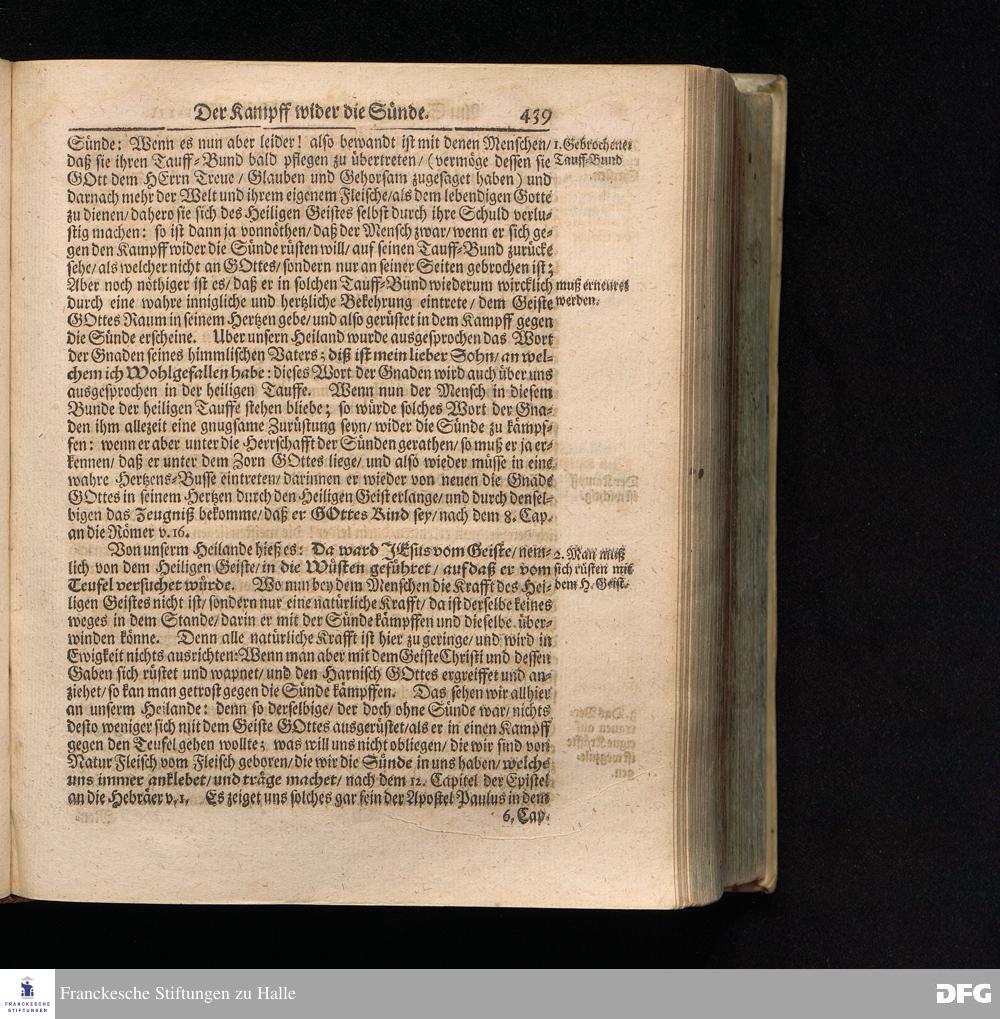 Der Kampff wider die Sünde. 439
Sünde: Wenn es nun aber leider! also bewandt ist mit denen Menschen/
1. Gebrochener
daß sie ihren Tauff-Bund bald pflegen zu übertreten/ (vermöge dessen sie
Tauff-Bund
GOtt dem HErrn Treue/ Glauben und Gehorsam zugesaget haben) und
darnach mehr der Welt und ihrem eigenem Fleische/als dem lebendigen Gotte
zu dienen/ dahero sie sich des Heiligen Geistes selbst durch ihre Schuld verlu-
stig machen: so ist dann ja vonnöthen/ daß der Mensch zwar/ wenn er sich ge-
gen den Kampff wider die Sünde rüsten will/ auf seinen Tauff-Bund zurücke
sehe/ als welcher nicht an GOttes/ sondern nur an seiner Seiten gebrochen ist;
Aber noch nöthiger ist es/ daß er in solchen Tauff-Bund wiederum wircklich
muß erneuret
durch eine wahre innigliche und hertzliche Bekehrung eintrete/ dem Geiste
werden.
GOttes Raum in seinem Hertzen gebe/ und also gerüstet in dem Kampff gegen
die Sünde erscheine. Uber unsern Heiland wurde ausgesprochen das Wort
der Gnaden seines himmlischen Vaters; diß ist mein lieber Sohn/ an wel-
chem ich Wohlgefallen habe: dieses Wort der Gnaden wird auch über uns
ausgesprochen in der heiligen Tauffe. Wenn nun der Mensch in diesem
Bunde der heiligen Tauffe stehen bliebe; so würde solches Wort der Gna-
den ihm allezeit eine gnugsame Zurüstung seyn/ wider die Sünde zu kämpf-
fen: wenn er aber unter die Herrschafft der Sünden gerathen/ so muß er ja er-
kennen/ daß er unter dem Zorn GOttes liege/ und also wieder müsse in eine
wahre Hertzens-Busse eintreten/ darinnen er wieder von neuen die Gnade
GOttes in seinem Hertzen durch den Heiligen Geist erlange/ und durch densel-
bigen das Zeugniß bekomme/ daß er GOttes Kind sey/ nach dem 8. Cap.
an die Römer v. 16.
Von unserm Heilande hieß es: Da ward JEsus vom Geiste/ nem-
2. Man muß
lich von dem Heiligen Geiste/ in die Wüsten geführet/ auf daß er vom
sich rüsten mit
Teufel versuchet würde. Wo nun bey dem Menschen die Krafft des Hei-
dem H. Geist.
ligen Geistes nicht ist/ sondern nur eine natürliche Krafft/ da ist derselbe keines
weges in dem Stande/ darin er mit der Sünde kämpffen und dieselbe über-
winden könne. Denn alle natürliche Krafft ist hier zu geringe/ und wird in
Ewigkeit nichts ausrichten: Wenn man aber mit dem Geiste Christi und dessen
Gaben sich rüstet und wapnet/ und den Harnisch GOttes ergreiffet und an-
ziehet/ so kan man getrost gegen die Sünde kämpffen. Das sehen wir allhier
an unserm Heilande: denn so derselbige/ der doch ohne Sünde war/ nichts
desto weniger sich mit dem Geiste GOttes ausgerüstet/ als er in einen Kampff
gegen den Teufel gehen wollte; was will uns nicht obliegen/ die wir sind von
Natur Fleisch vom Fleisch geboren/ die wir die Sünde in uns haben/ welche
uns immer anklebet/ und träge machet/ nach dem 12. Capitel der Epistel
an die Hebräer v. 1. Es zeiget uns solches gar fein der Apostel Paulus in dem
6. Cap.
FRANCKESCHE
STIFTUNGEN
Franckesche Stiftungen zu Halle
DFG